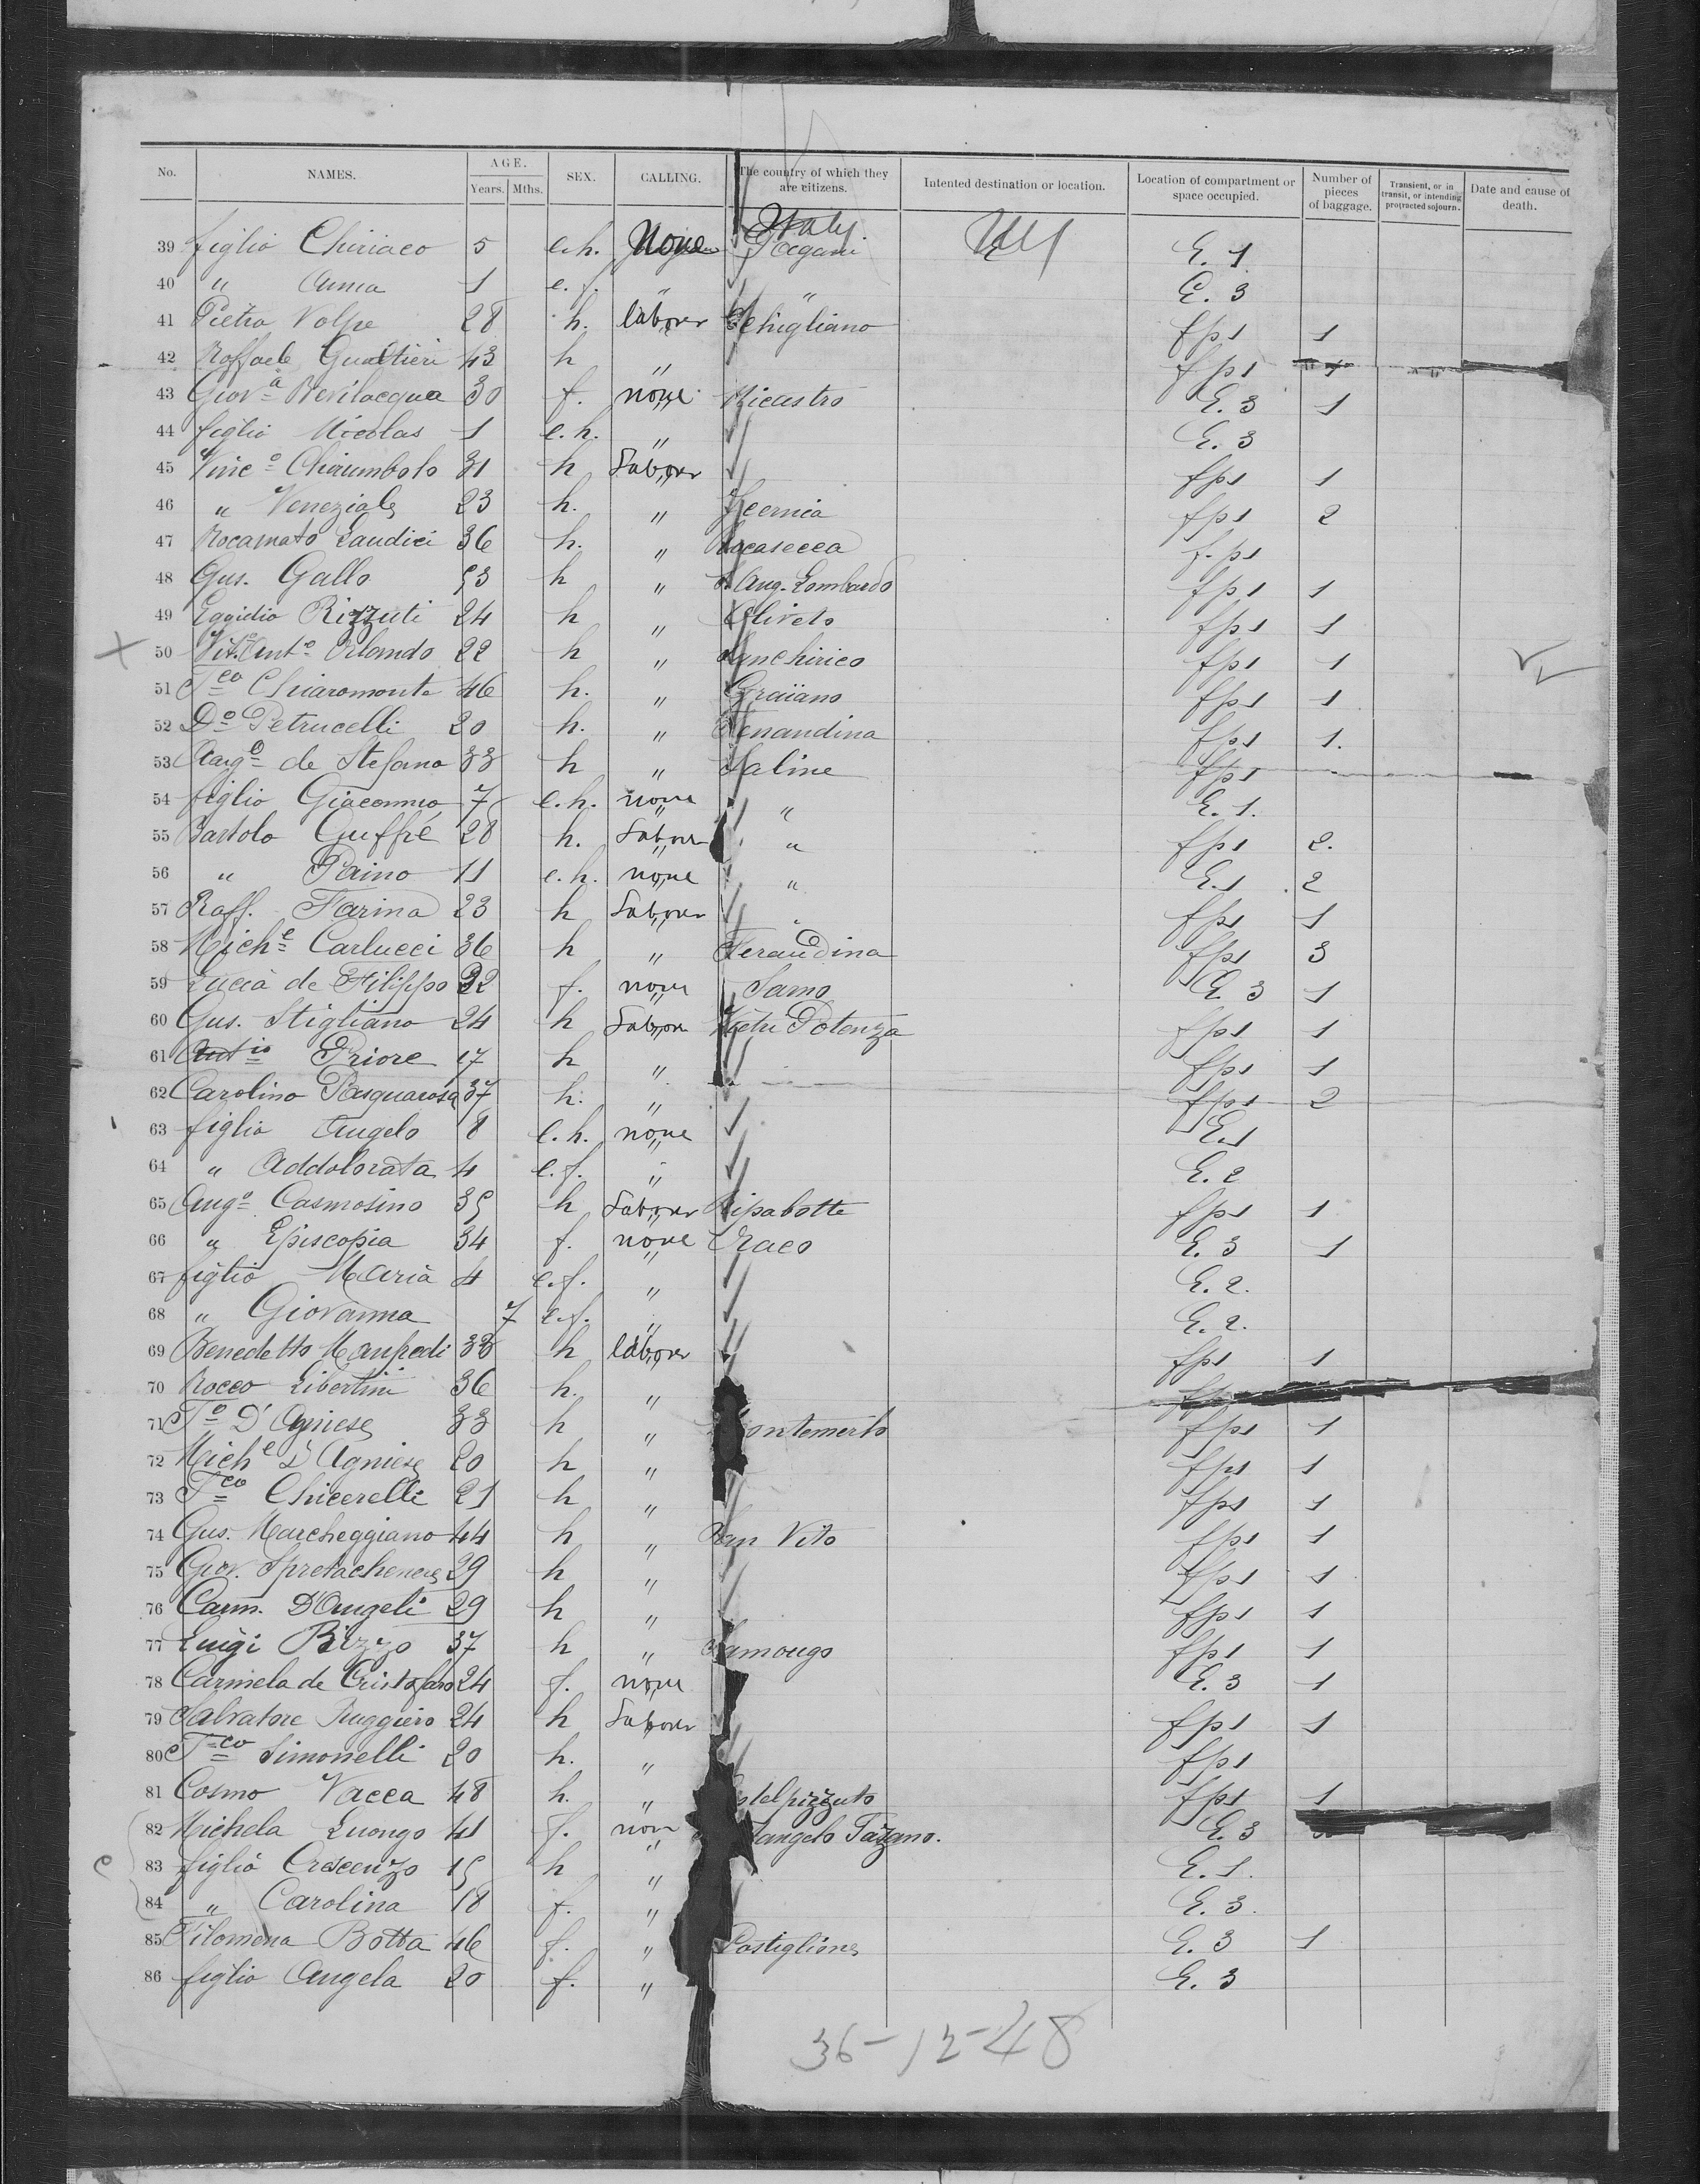 No. NAMES. AGE. Years. Mths. SEX. CALLING. The country of which they are citizens. Intented destination or location. Location of compartment or space occupied. Number of pieces of baggage. Transient, or in transit, or intending protracted sojourn. Date and cause of death.
Italy.
39 figlio Chiriaco 5 e.h. None Pagani NY E. 1
40 " Anna 1 e.f. " " E. 3
41 Pietro Volpe 28 h. laborer fps 1
42 Raffaele Gualtieri 43 h " fps 1
43 Giovª Bevilacqua 30 f. none Nicastro E. 3 1
44 figlio Nicolas 1 e.h. " E. 3
45 Vincº Chirumbolo 31 h Laborer fps 1
46 " Veneziale 23 h. " fps 2
47 Rocamato Laudici 36 h. " Rocasecca f.ps
48 Gus. Gallo 53 h " S. Ang. Lombardo fps 1
49 Eggidio Rizzuti 24 h " Oliveto fps 1
50 Vit. Antº Orlando 22 h " fps 1
51 Fco Chiaromonte 46 h. " Graiano fps 1
52 Dº Petrucelli 20 h. " fps 1.
53 Angº de Stefano 33 h " Saline fps
54 figlio Giacommo 7 e.h. none " E. 1.
55 Bartolo Guffré 28 h. Laborer " fps 2.
56 " Paino 11 e.h. none " E. 1 2
57 Raff. Farina 23 h Laborer fps 1
58 Miche Carlucci 36 h " Feraudina fps 3
59 Lucia de Filippo 32 f. none Sarno E. 3 1
60 Gus. Stigliano 24 h Labore Vietri Potenza fps 1
61 Antio Priore 17 h " fps 1
62 Carolino Pasquarosa 37 h. " fps 2
63 figlio Angelo 8 e.h. none E. 1
64 " Addolorata 4 e.f. " E. 2
65 Angº Casmosino 35 h Laborer Ripabotte fps 1
66 " Episcopia 34 f. none Craco E. 3 1
67 figlio Maria 4 e.f. " E. 2.
68 " Giovanna 7 e.f. " E. 2.
69 Benedetto Manfredi 38 h laborer fps 1
70 Rocco Libertini 36 h. "
71 Fº D'Agniese 33 h " fps 1
72 Miche D'Agniese 20 h " fps 1
73 Fco Chicerelli 21 h " fps 1
74 Gus. Marcheggiano 44 h " San Vito fps 1
75 Giov. Spretachenere 29 h " fps 1
76 Carm. D'Angeli 29 h " fps 1
77 Luigi Rizzo 37 h " fps 1
78 Carmela de Cristofaro 24 f. none E. 3 1
79 Salvatore Ruggiero 24 h Laborer fps 1
80 Fco Simonelli 20 h. " fps
81 Cosmo Vacca 48 h. " stelpizzuto fps 1
82 Michela Luongo 41 f. non angelo Fazzano. E. 3
83 figlio Crescenzo 15 h " E. 1.
84 " Carolina 18 f. " E. 3.
85 Filomena Botta 46 f. " Postiglione E. 3 1
86 figlio Angela 20 f. " E. 3
36-12-48